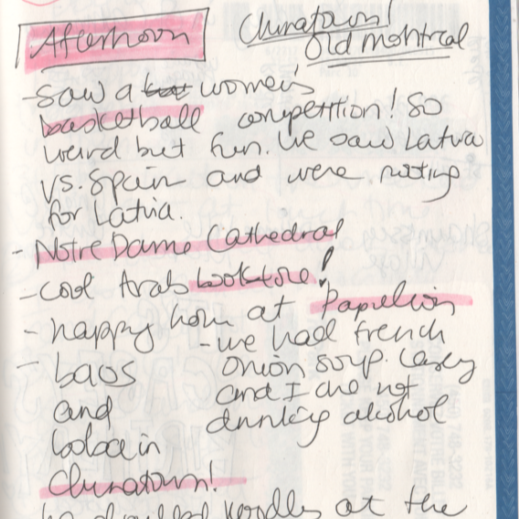 Afternoon
Chinatown!
Old montreal
- Saw a women's
basketball competition! So
weird but fun. We saw Latvia
VS. Spain and were rooting
for Latvia.
- Notre Dame Cathedral
- cool Arab bookstore!
- happy hour at Papillion
- we had french
onion soup. Casey
and I are not
drinking alcohol
- baos
and
boba in
Chinatown!
noodles at the